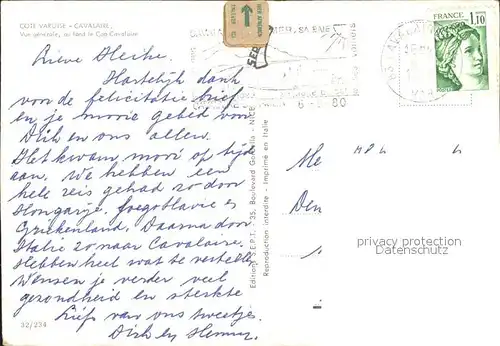 COTE VAROISE - CAVALAIRE
Vue générale, au fond le Cap Cavalaire
FRANCE
1,10
6-6 80
Lieve Heike.
Hartelijk dank
voor de felicitatie brief
en je mooie gebed voor
Dick en ons allen.
Het kwam mooi op tijd
aan. We hebben een
hele reis gehad zo door
Hongarije, Joegoslavie en
Griekenland. Daarna door
Italie zo naar Cavalaire.
Hebben heel wat te vertellen
Wensen je verder veel
gezondheid en sterkte
Liefs van ons tweetjes.
Dick en
Editions S.E.P.T. - 35, Boulevard - NICE
Reproduction interdite - Imprimé en Italie
Den
privacy protection
Datenschutz
32/234